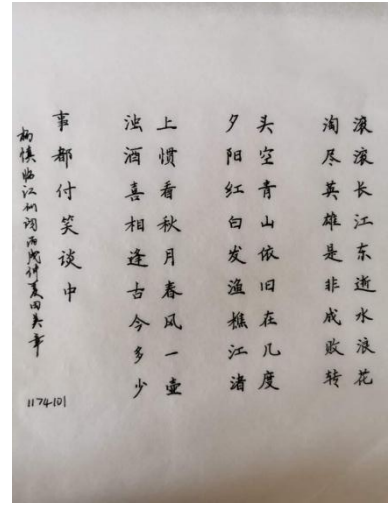 滚滚长江东逝水浪花
淘尽英雄是非成败转
头空青山依旧在几度
夕阳红白发渔樵江渚
上惯看秋月春风一壶
浊酒喜相逢古今多少
事都付笑谈中
杨慎临江仙词丙戌仲夏田英章
1174-101